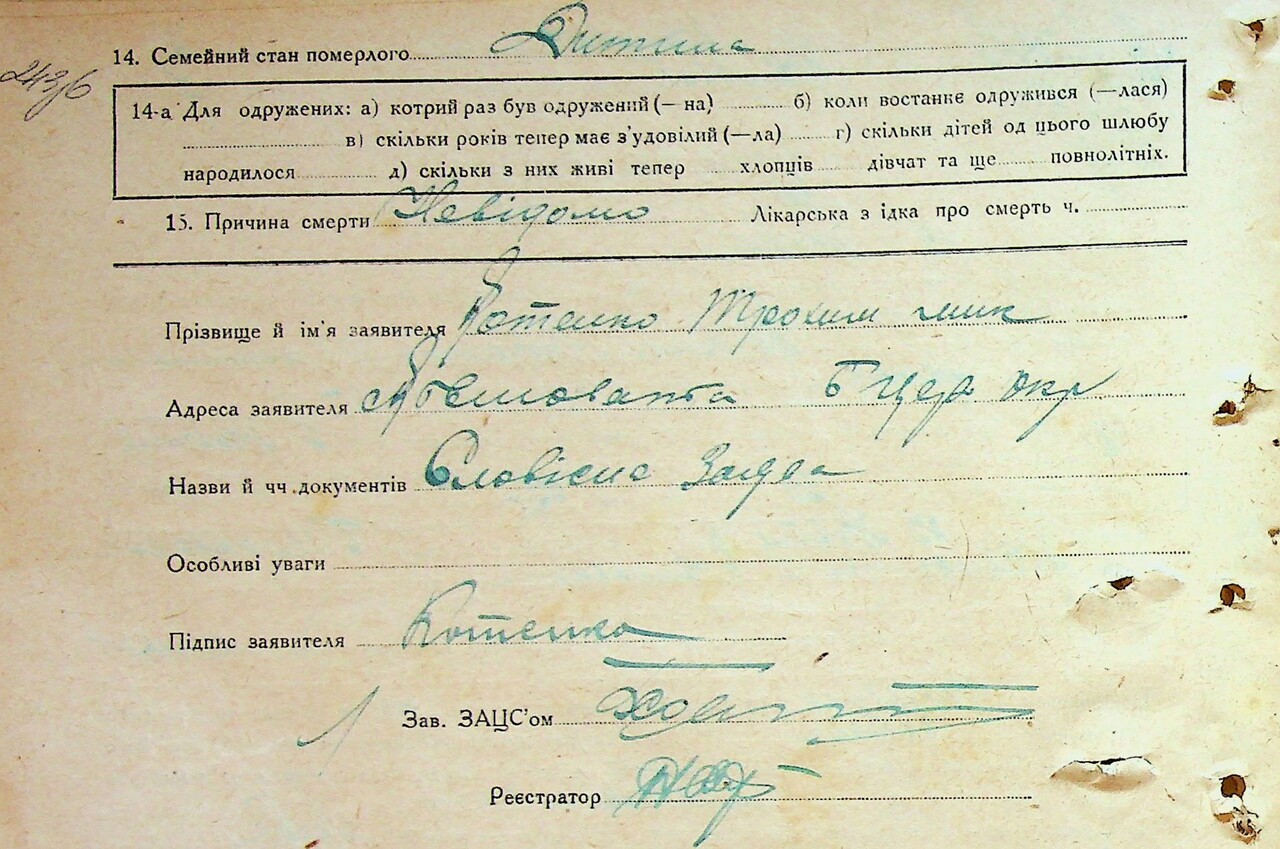 14. Семейний стан померлого Дитина
243/6
14-а Для одружених: а) котрий раз був одружений (— на) б) коли востанкє одружився (—лася)
в) скільки років тепер має з'удовілий (—ла) г) скільки дітей од цього шлюбу
народилося д) скільки з них живі тепер хлопців дівчат та ще повнолітніх.
15. Причина смерти Невідомо Лікарська з ідка про смерть ч.
Прізвище й ім'я заявителя Котенко Трохим мик
Адреса заявителя Б Цер окр
Назви й чч документів Словісна Заява
Особливі уваги
Підпис заявителя Котенко
Зав. ЗАЦС'ом
Реєстратор